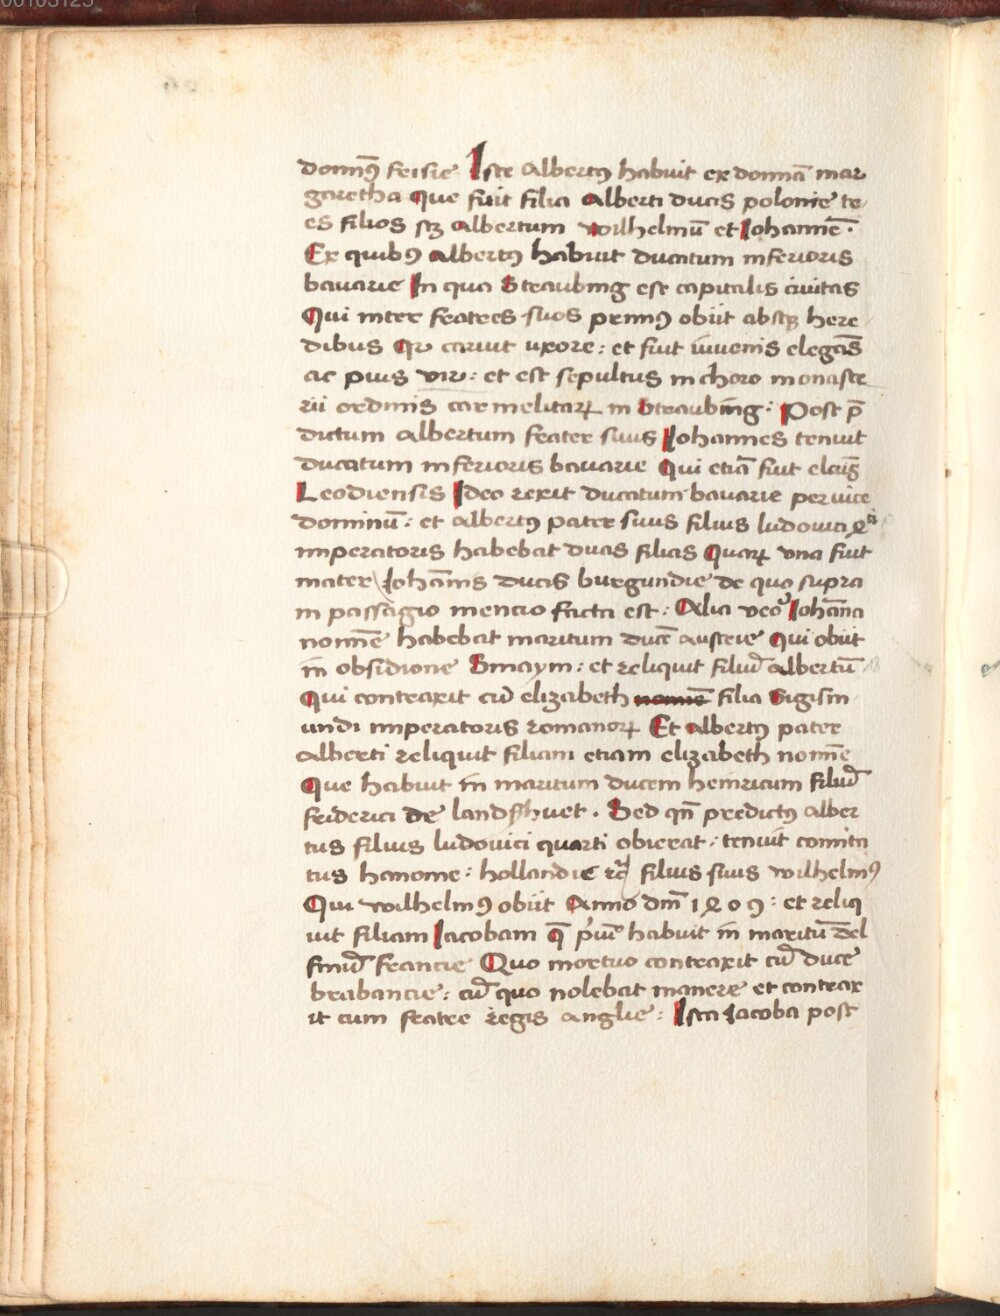 00103125
domin9 frisie Iste Albert9 habuit ex domna mar
garetha Que fuit filia Alberti ducis polonie tr
es filios scz Albertum wilhelmū et Johannē ·
Ex quib9 Albert9 habuit ducatum inferioris
bauarie In qua Straubing est capitalis ciuitas
Qui inter fratres suos prim9 obiit absq3 here
dibus Qr caruit uxore : et fuit iuuenis elegās
ac pius vir : et est sepultus in choro monaste
rii ordinis carmelitarꝝ in Straubing : Post p̄
dictum Albertum frater suus Johannes tenuit
ducatum inferioris bauarie Qui etiā fuit
Leodiensis Ideo rexit ducatum bauarie per uice
dominū : et Albert9 pater suus filius ludouici 4ti
imperatoris habebat duas filias Quarꝝ una fuit
mater Johānis ducis burgundie de quo supra
in passagio mencio facta est : Alia vero Johāna
nomīe habebat maritum ducē austrie Qui obiit
in obsidione Snaym : et reliquit filiū Albertū
Qui contraxit cū elizabeth filia Sigism
undi imperatoris romanorꝝ Et Albert9 pater
Alberti reliquit filiam etiam elizabeth nomīe
Que habuit in maritum ducem heinricum filiū
friderici de landshuet · Sed qn̄ predictus alber
tus filius ludouici quarti obierat : tenuit comita
tus hanonie : hollandie rc̄ filius suus wilhelm9
Qui wilhelm9 obiit Anno dm̄ 1409 : et reliq
uit filiam Jacobam q̄ p'mū habuit in maritū del
finū francie Quo mortuo contraxit cū duce
brabancie : cū quo nolebat manere et contrax
it cum fratre regis anglie : Ista Jacoba post